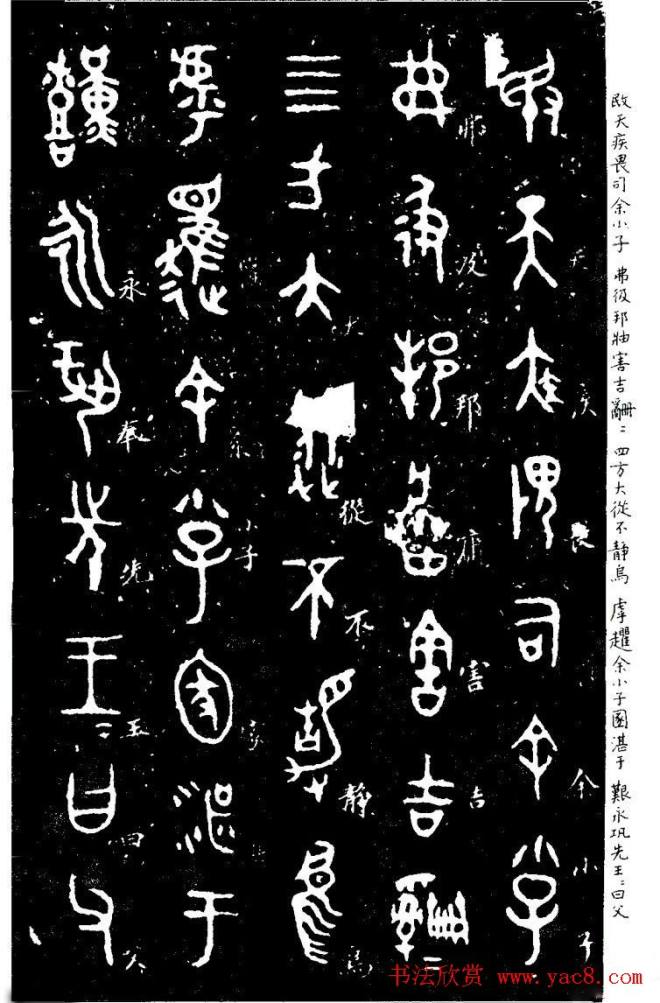 敃天疾畏司余小子
弗彶邦害吉
四方大從不靜烏
虖趯余小子圂湛于
艱永巩先王=曰父
敃天疾畏司余小子 弗彶邦害吉 四方大從不靜烏 虖趯余小子圂湛于 艱永巩先王=曰父
书法欣赏 www.yac8.com